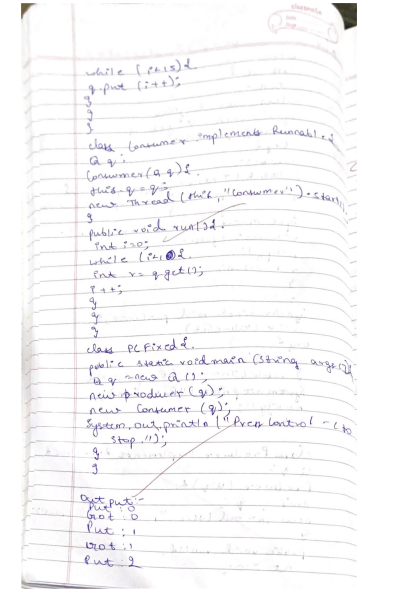 classmate
Date
Page
while (i<15){
q.put (i++);
}
}
}
class Consumer implements Runnable {
Q q;
Consumer(Q q){
this.q = q;
new Thread (this, "Consumer").start();
}
public void run(){
int i=0;
while (i<10){
int r = q.get();
i++;
}
}
}
class PCFixed {
public static void main (String args[]){
Q q = new Q();
new producer (q);
new Consumer (q);
System.out.println ("Press Control - C to
stop.");
}
}
Output:-
Put : 0
Got : 0
Put : 1
Got : 1
Put : 2